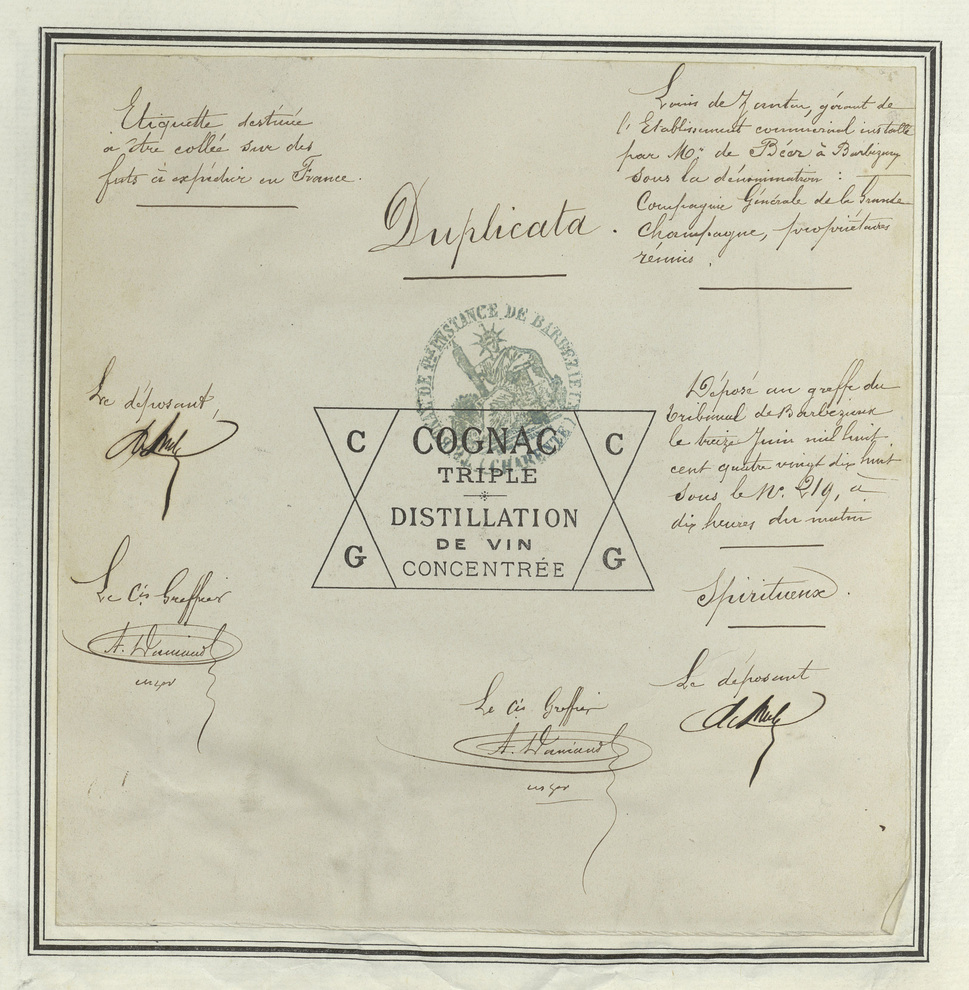 Etiquette destinée
à être collée sur des
futs à expédier en France.
Duplicata.
Louis de gérant de
l'Etablissement commercial installé
par Mr. de à
sous la dénomination :
Compagnie Générale de la Grande
Champagne, propriétaires
réunis.
INSTANCE DE BARBEZIEUX
(CHARENTE)
C
C
COGNAC
TRIPLE
DISTILLATION
DE VIN
CONCENTRÉE
G
G
Le déposant,
Déposé au greffe du
tribunal de Barbezieux
le treize Juin mil huit
cent quatre vingt dix huit
sous le No. 219, à
dix heures du matin
Spiritueux.
Le Cis Greffier
Le déposant
Le Cis Greffier